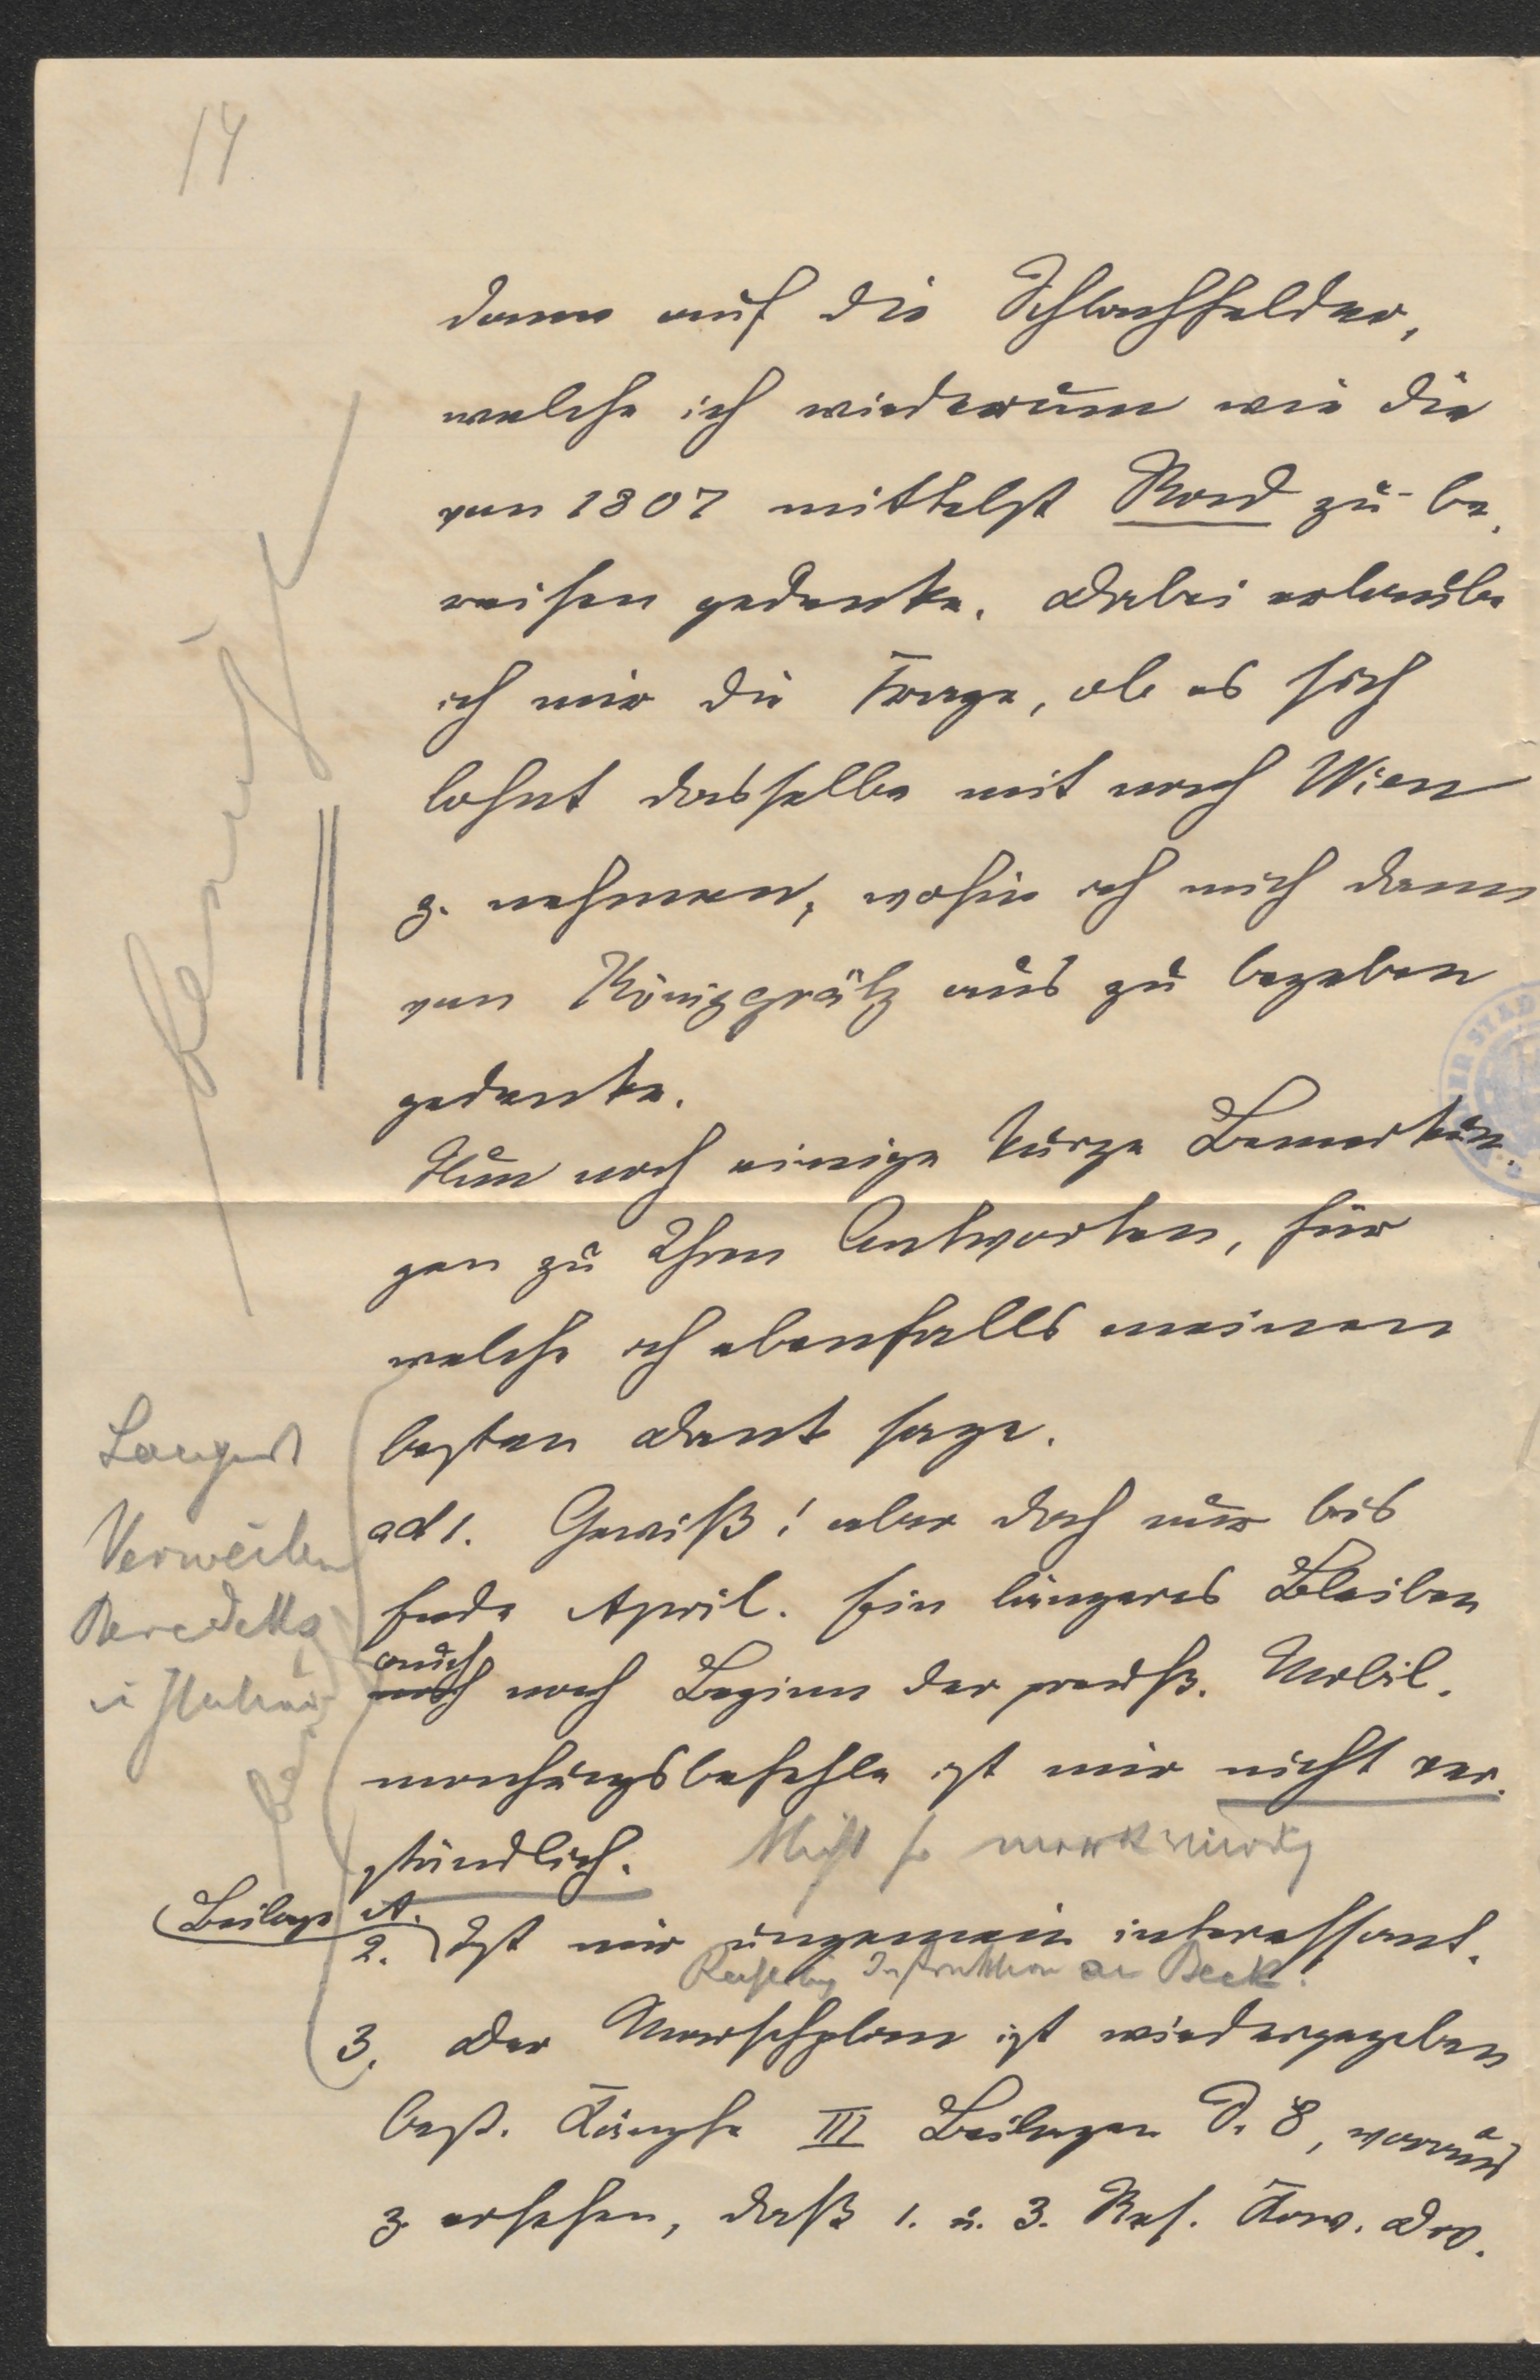 14
dann auf die Schlachfelder,
welche ich wiederum wie die
von 1807 mittelst Rad zu be-
reisen gedenke. Dabei erlaube
ich mir die Frage, ob es sich
lohnt dasselbe mit nach Wien
z. nehmen, wohin ich mich dann
von Königgrätz aus zu begeben
gedenke.
Nun noch einige kurze Bemerkun-
gen zu Ihren Antworten, für
welche ich ebenfalls meinen
besten Dank sage.
Verweilen
Benedeks
ad 1. Gewiß! aber doch nur bis
Ende April. Ein längeres Bleiben
auch nach Beginn der preuß. Mobil-
machungsbefehle ist mir nicht ver-
ständlich. Nicht so merkwürdig
Beilage A.
2. Ist mir ungemein interessant.
Instruktion an Beck!
3. Der Marschplan ist wiedergegeben
östr. Kämpfe III Beilagen S. 8, woraus
z. ersehen, daß 1. u. 3. Res. Kav. Div.